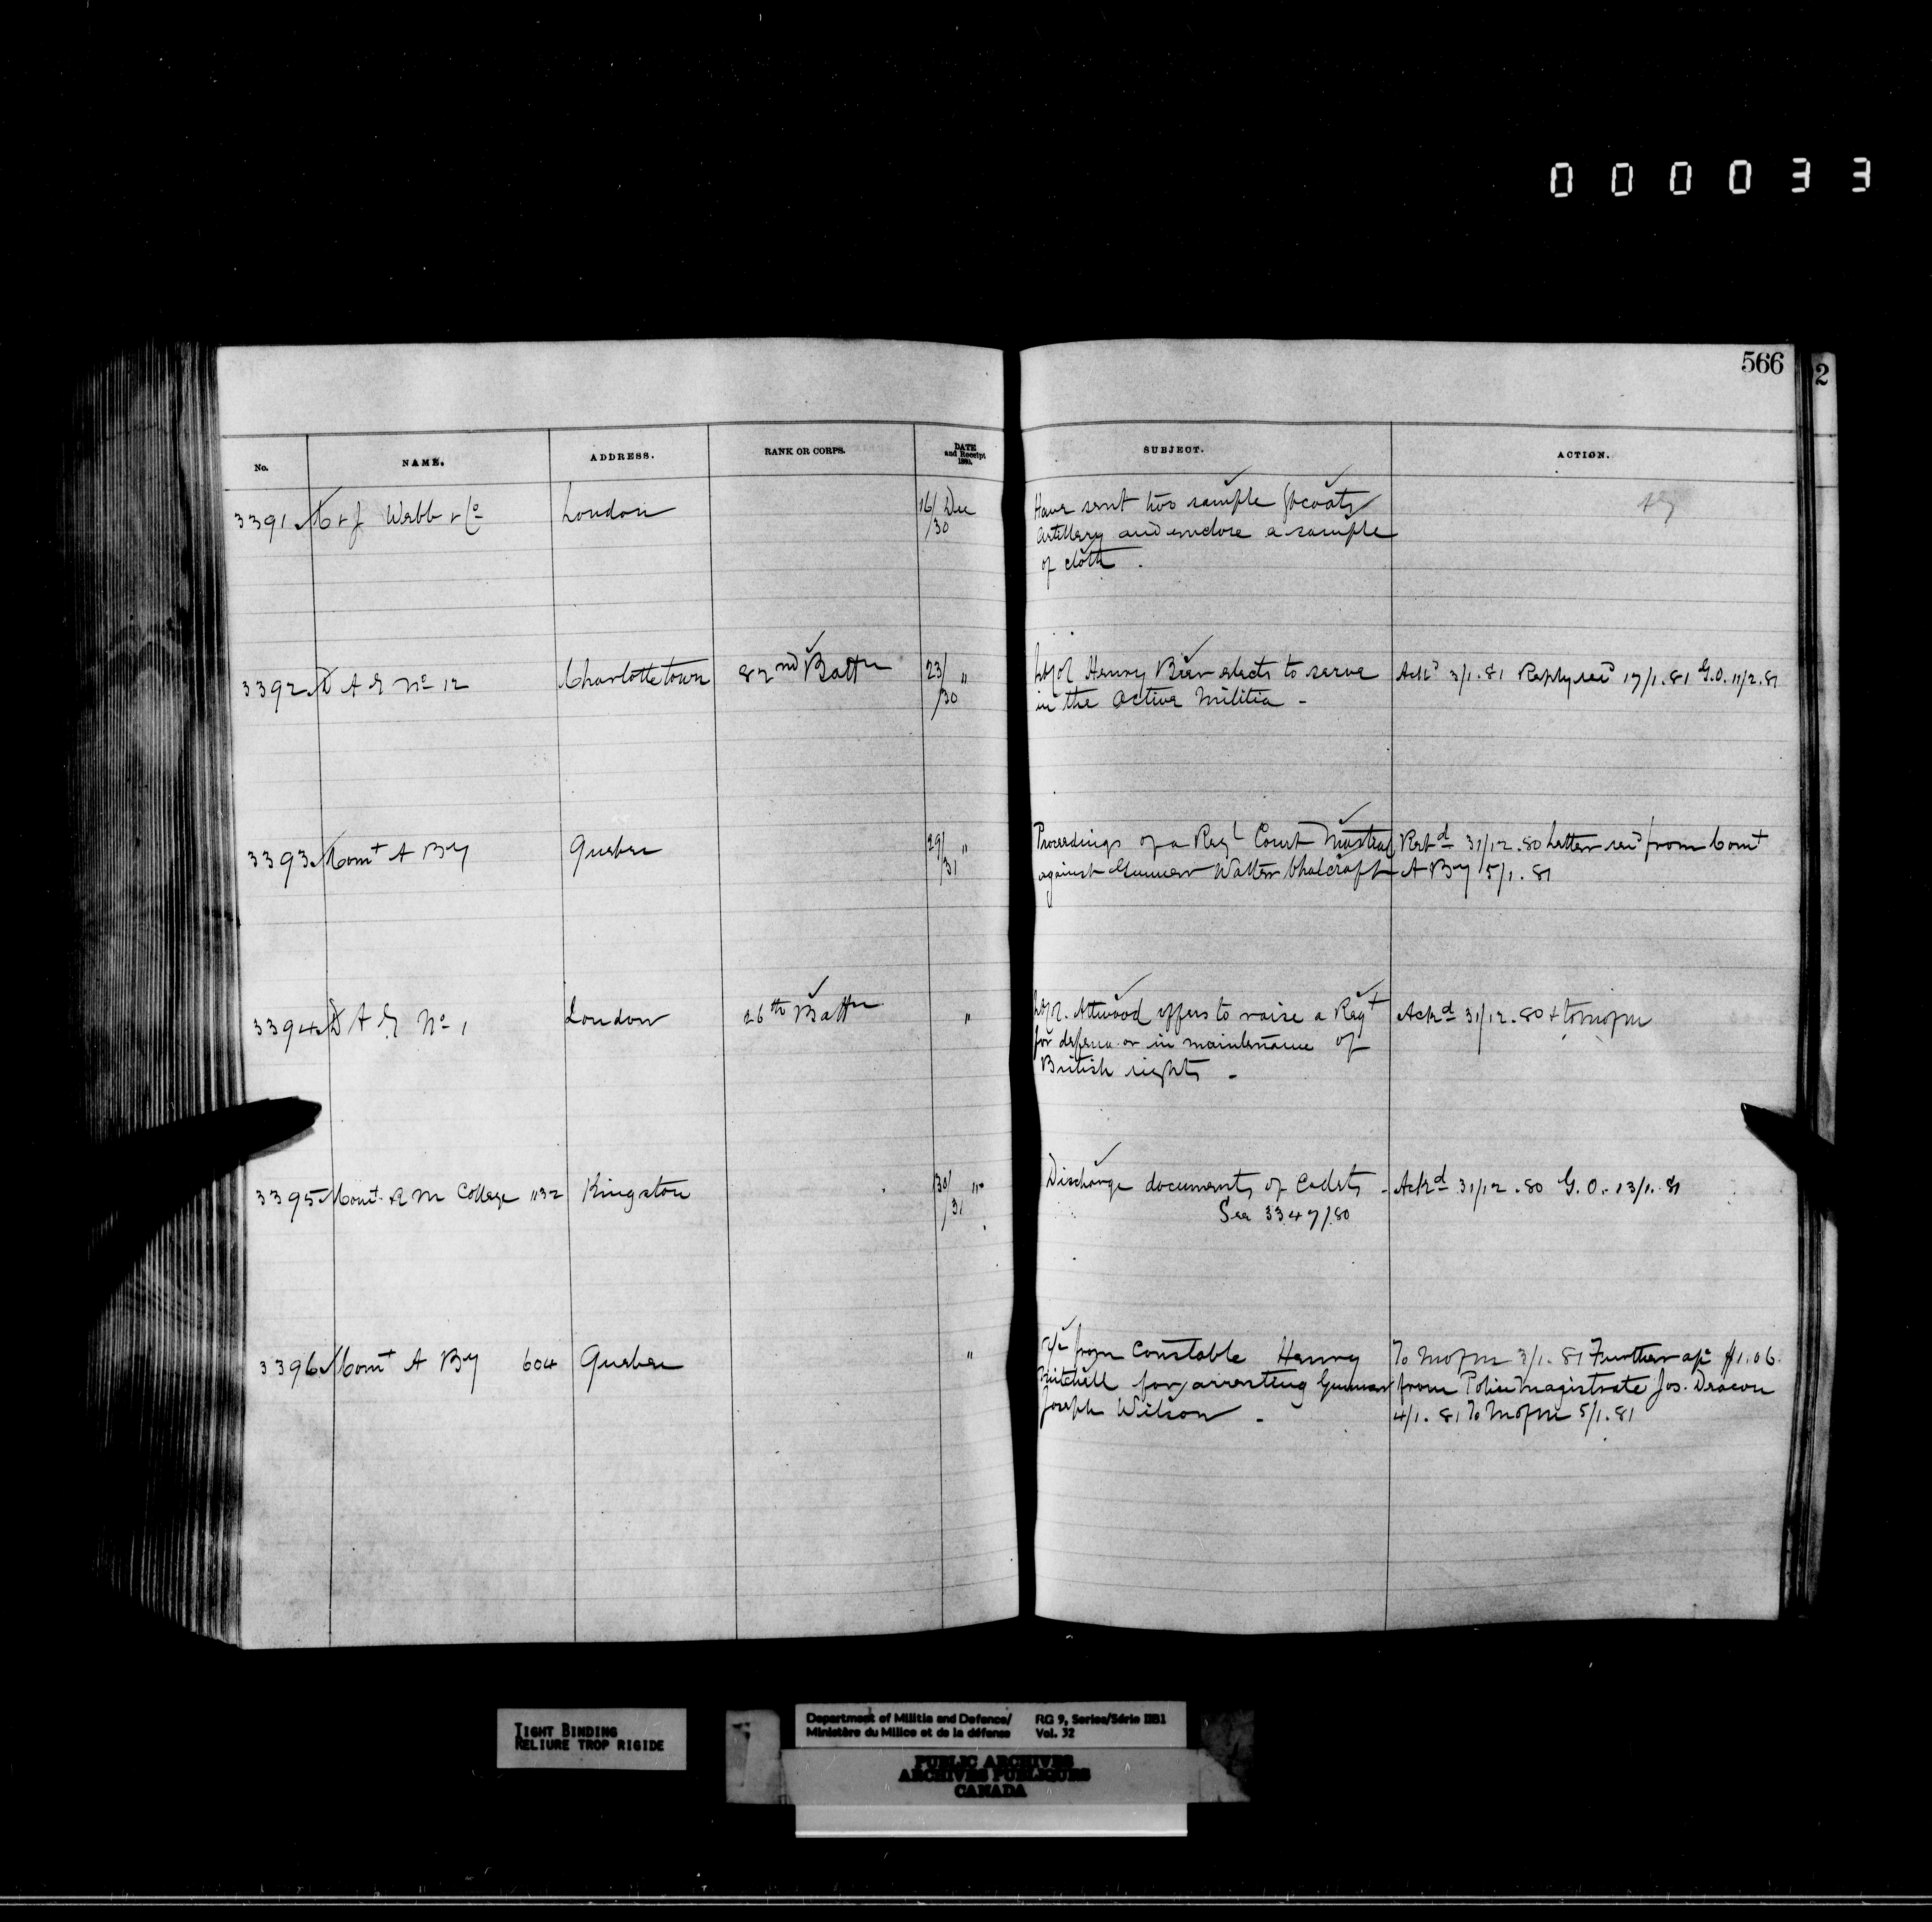 000033
566
2
No. NAME. ADDRESS. RANK OR CORPS. DATE and Receipt 1880. SUBJECT. ACTION.
3391 C & J Webb & Co London 16/30 Dec Have sent two sample Gtcoats
Artillery and enclose a sample
of cloth.
3392 D A G No 12 Charlottetown 82nd Battn 23/30 " Lt Col Henry Beer elects to serve Ackd 3/1.81 Reply recd 17/1.81 G.O. 11/2.81
in the Active Militia -
3393 Comt A By Quebec 29/31 " Proceedings of a Regl Court Martial Retd 31/12.80 Letter recd from Comt
against Gunner Walter Chalcraft A By 5/1.81
3394 D A G No 1 London 26th Battn " Lt Col. Attwood offers to raise a Regt Ackd 31/12.80 & to M of M
for defence or in maintenance of
British rights -
3395 Comt. R M College 1132 Kingston 30/31 " Discharge documents of Cadets - Ackd 31/12.80 G.O. 13/1.81
See 3347/80
3396 Comt A By 604 Quebec " a/c from Constable Henry To M of M 3/1.81 Further a/c $1.06
Mitchell for arresting Gunner from Police Magistrate Jos. Deacon
Joseph Wilson - 4/1.81 To M of M 5/1.81
TIGHT BINDING
RELIURE TROP RIGIDE
Department of Militia and Defence/ RG 9, Series/Série IIB1
Ministère du Milice et de la défense Vol. 32
PUBLIC ARCHIVES
ARCHIVES PUBLIQUES
CANADA